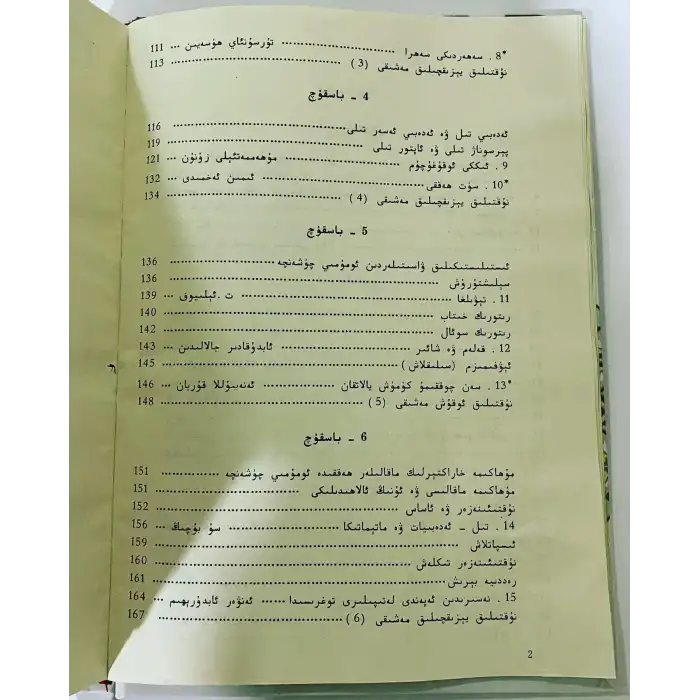 *8 . سەھەردىكى سەھرا ............ تۇرسۇنئاي ھۈسەيىن ... 111
نۇقتىلىق يېزىقچىلىق مەشىقى (3) ............ 113
4 ـ باسقۇچ
ئەدەبىي تىل ۋە ئەدەبىي ئەسەر تىلى ............ 116
پېرسوناژ تىلى ۋە ئاپتور تىلى ............ 119
9 . ئىككى ئوقۇغۇچۇم ............ مۇھەممەتئېلى زۇنۇن ... 121
*10 . سۈت ھەققى ............ ئىمىن ئەخمىدى ... 132
نۇقتىلىق يېزىقچىلىق مەشىقى (4) ............ 134
5 ـ باسقۇچ
ئىستىلىستىكىلىق ۋاسىتىلەردىن ئومۇمىي چۈشەنچە ............ 136
سېلىشتۇرۇش ............ 136
11 . تېۋىلغا ............ ت . ئېلىيوف ... 139
رىتورىك خىتاب ............ 140
رىتورىك سوئال ............ 142
12 . قەلەم ۋە شائىر ............ ئابدۇقادىر جالالىدىن ... 143
ئېۋفىمىزم (سىلىقلاش) ............ 145
*13 . سەن چوققىمۇ كۈمۈش يالاتقان ............ ئەنەيىۇللا قۇربان ... 146
نۇقتىلىق ئوقۇش مەشىقى (5) ............ 148
6 ـ باسقۇچ
مۇھاكىمە خاراكتېرلىك ماقالىلەر ھەققىدە ئومۇمىي چۈشەنچە ............ 151
مۇھاكىمە ماقالىسى ۋە ئۇنىڭ ئالاھىدىلىكى ............ 151
نۇقتىئىنەزەر ۋە ئاساس ............ 152
14 . تىل ـ ئەدەبىيات ۋە ماتېماتىكا ............ سۇ بۇچىڭ ... 156
ئىسپاتلاش ............ 159
نۇقتىئىنەزەر تىكلەش ............ 160
رەددىيە بېرىش ............ 161
15 . نەسىردىن ئەپەندى لەتىپىلىرى توغرىسىدا ...... ئەنۋەر ئابدۇرېھىم ... 164
نۇقتىلىق يېزىقچىلىق مەشىقى (6) ............ 167
2